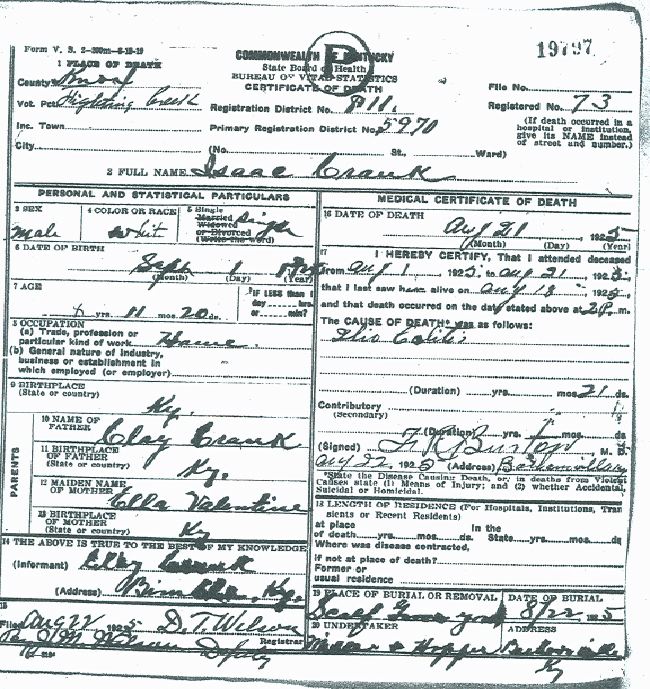 Form V. S. 2-300m-8-15-19
COMMONWEALTH OF KENTUCKY
State Board of Health
BUREAU OF VITAL STATISTICS
CERTIFICATE OF DEATH
19797
1 PLACE OF DEATH
County Knox
Vot. Pct. Fighting Creek
Inc. Town
City
Registration District No. 811.
Primary Registration District No. 5970
(No. St., Ward)
File No.
Registered No. 73
(If death occurred in a hospital or institution, give its NAME instead of street and number.)
2 FULL NAME Isaac Crank
PERSONAL AND STATISTICAL PARTICULARS
3 SEX
Male
4 COLOR OR RACE
Whit
5 Single
Married
Widowed
or Divorced
(Write the word)
Single
6 DATE OF BIRTH
Sept 1
(Month) (Day) (Year)
7 AGE
yrs. 11 mos. 20 ds.
IF LESS than 1
day hrs.
or min?
8 OCCUPATION
(a) Trade, profession or
particular kind of work Home.
(b) General nature of industry,
business or establishment in
which employed (or employer)
9 BIRTHPLACE
(State or country)
Ky.
PARENTS
10 NAME OF
FATHER
Clay Crank
11 BIRTHPLACE
OF FATHER
(State or country)
Ky.
12 MAIDEN NAME
OF MOTHER
Ella Valentine
13 BIRTHPLACE
OF MOTHER
(State or country)
Ky
14 THE ABOVE IS TRUE TO THE BEST OF MY KNOWLEDGE
(Informant) Clay Crank
(Address) Bimble, Ky.
15
Filed Aug 22 1925 D. T. Wilson
Registrar
By Wilson Deputy
MEDICAL CERTIFICATE OF DEATH
16 DATE OF DEATH
Aug 21 1925
(Month) (Day) (Year)
17
I HEREBY CERTIFY, That I attended deceased
from Aug 1, 1925, to Aug 21, 1925,
that I last saw h alive on Aug 18 1925,
and that death occurred on the date stated above at 2 P. m.
The CAUSE OF DEATH* was as follows:
Ilio Colitis
(Duration) yrs. mos. 21 ds.
Contributory
(Secondary)
(Duration) yrs. mos. ds
(Signed) Burton, M. D.
Aug 22 1925 (Address)
*State the Disease Causing Death, or, in deaths from Violent
Causes state (1) Means of Injury; and (2) whether Accidental,
Suicidal or Homicidal.
18 LENGTH OF RESIDENCE (For Hospitals, Institutions, Tran
sients or Recent Residents)
at place
of death yrs. mos. ds.
In the
State yrs. mos. ds
Where was disease contracted,
if not at place of death?
Former or
usual residence
19 PLACE OF BURIAL OR REMOVAL
Scalf Grave yard
DATE OF BURIAL
8/22 1925
20 UNDERTAKER
Miller & Hopper
ADDRESS
Barbourville
Ky